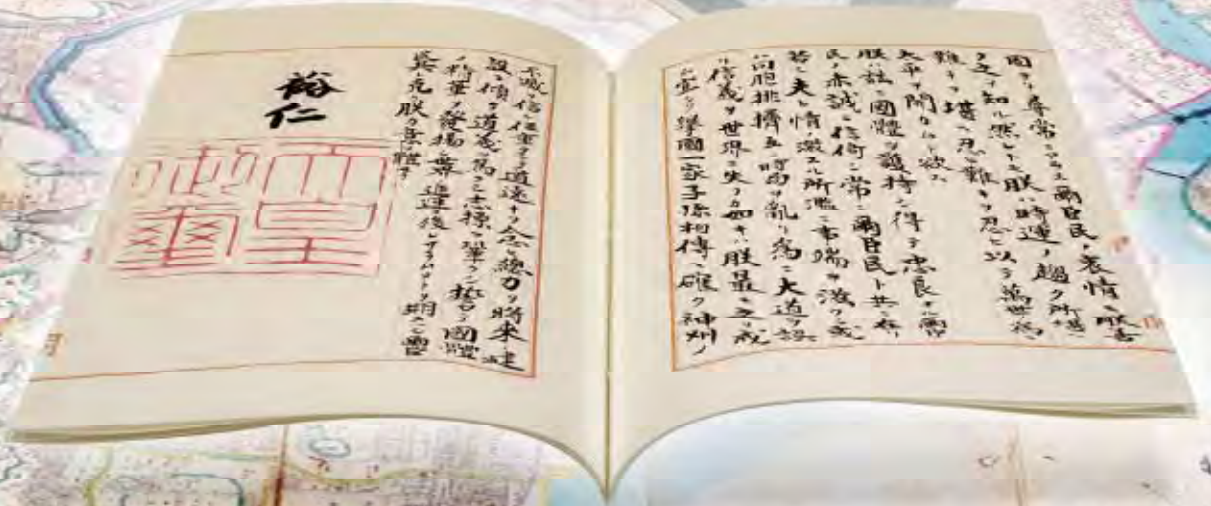 固ヨリ尋常ニアラス爾臣民ノ衷情モ朕善
ク之ヲ知ル然レトモ朕ハ時運ノ趨ク所堪ヘ
難キヲ堪ヘ忍ヒ難キヲ忍ヒ以テ萬世ノ爲ニ
太平ヲ開カムト欲ス
朕ハ茲ニ國體ヲ護持シ得テ忠良ナル爾臣
民ノ赤誠ニ信倚シ常ニ爾臣民ト共ニ在リ
若シ夫レ情ノ激スル所濫ニ事端ヲ滋クシ或
ハ同胞排擠互ニ時局ヲ亂リ爲ニ大道ヲ誤
リ信義ヲ世界ニ失フカ如キハ朕最モ之ヲ戒
ム宜シク擧國一家子孫相傳ヘ確ク神州ノ
不滅ヲ信シ任重クシテ道遠キヲ念ヒ總力ヲ將來ノ建
設ニ傾ケ道義ヲ篤クシ志操ヲ鞏クシ誓テ國體
ノ精華ヲ發揚シ世界ノ進運ニ後レサラムコトヲ期スヘシ爾
臣民其レ克ク朕カ意ヲ體セヨ
裕仁
天皇
御璽